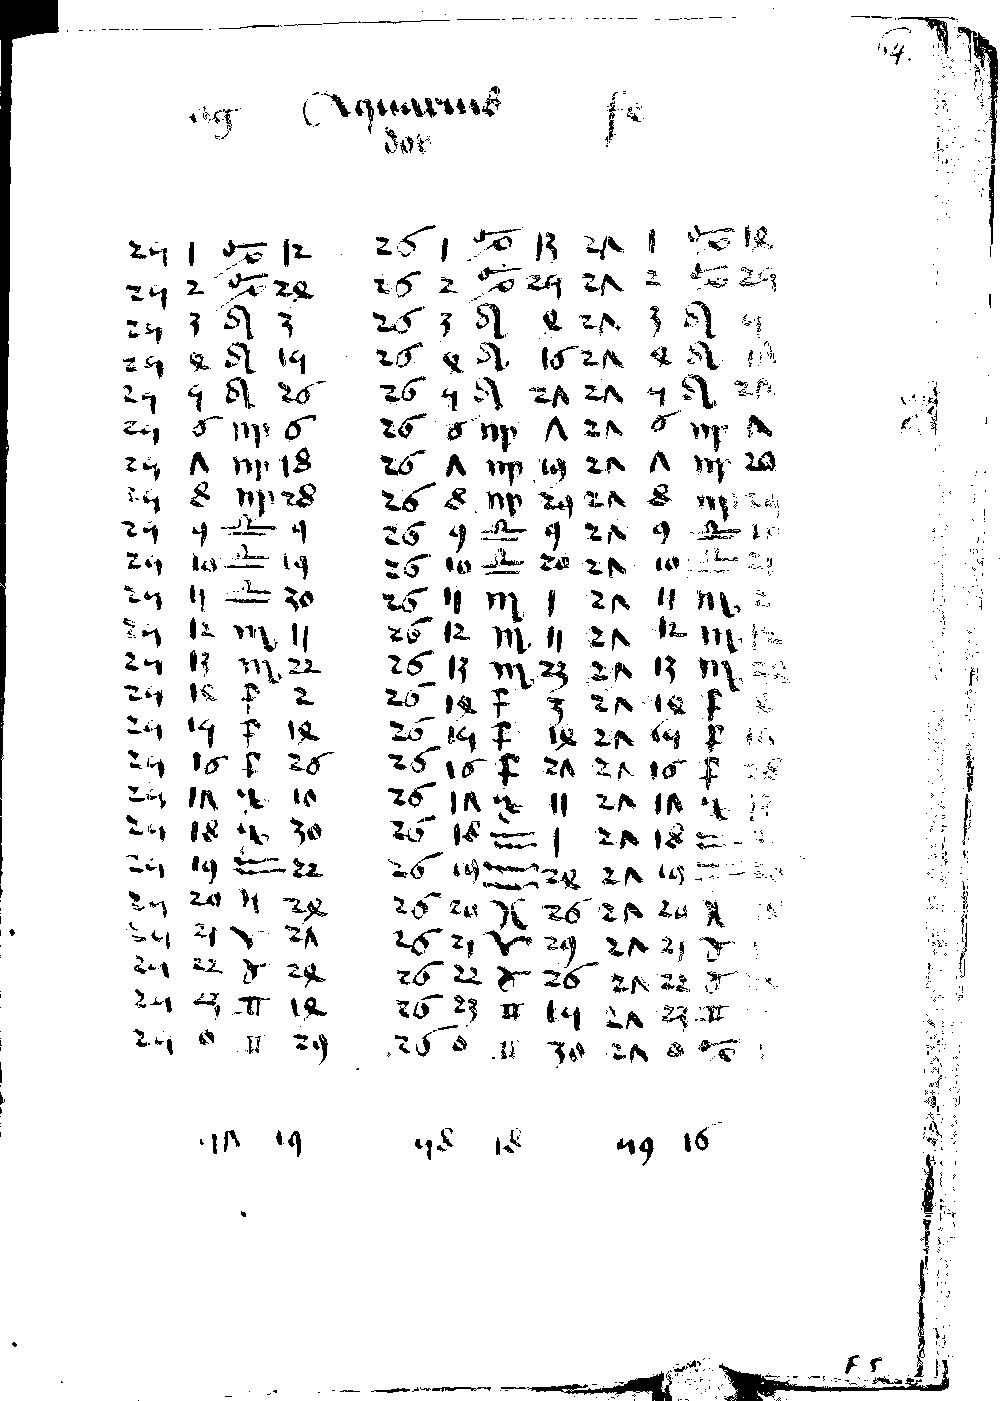 54.
ag Aquarius fe
dor
25 1 ♋ 12 26 1 ♋ 13 27 1 ♋ 14
25 2 ♋ 24 26 2 ♋ 25 27 2 ♋ 25
25 3 ♌ 3 26 3 ♌ 4 27 3 ♌ 5
25 4 ♌ 15 26 4 ♌ 16 27 4 ♌ 17
25 5 ♌ 26 26 5 ♌ 27 27 5 ♌ 27
25 6 ♍ 6 26 6 ♍ 7 27 6 ♍ 7
25 7 ♍ 18 26 7 ♍ 19 27 7 ♍ 20
25 8 ♍ 28 26 8 ♍ 29 27 8 ♍ 29
25 9 ♎ 9 26 9 ♎ 9 27 9 ♎ 10
25 10 ♎ 19 26 10 ♎ 20 27 10 ♎ 21
25 11 ♎ 30 26 11 ♏ 1 27 11 ♏ 2
25 12 ♏ 11 26 12 ♏ 11 27 12 ♏ 12
25 13 ♏ 22 26 13 ♏ 23 27 13 ♏ 24
25 14 ♐ 2 26 14 ♐ 3 27 14 ♐ 4
25 15 ♐ 14 26 15 ♐ 14 27 15 ♐
25 16 ♐ 26 26 16 ♐ 27 27 16 ♐ 28
25 17 ♑ 10 26 17 ♑ 11 27 17 ♑
25 18 ♑ 30 26 18 ♒ 1 27 18 ♒
25 19 ♒ 22 26 19 ♒ 24 27 19 ♒
25 20 ♓ 24 26 20 ♓ 26 27 20 ♓
25 21 ♈ 27 26 21 ♈ 29 27 21 ♉
25 22 ♉ 24 26 22 ♉ 26 27 22 ♉
25 23 ♊ 14 26 23 ♊ 15 27 23 ♊
25 0 ♊ 29 26 0 ♊ 30 27 0 ♋
57 19 58 18 59 16
F 5